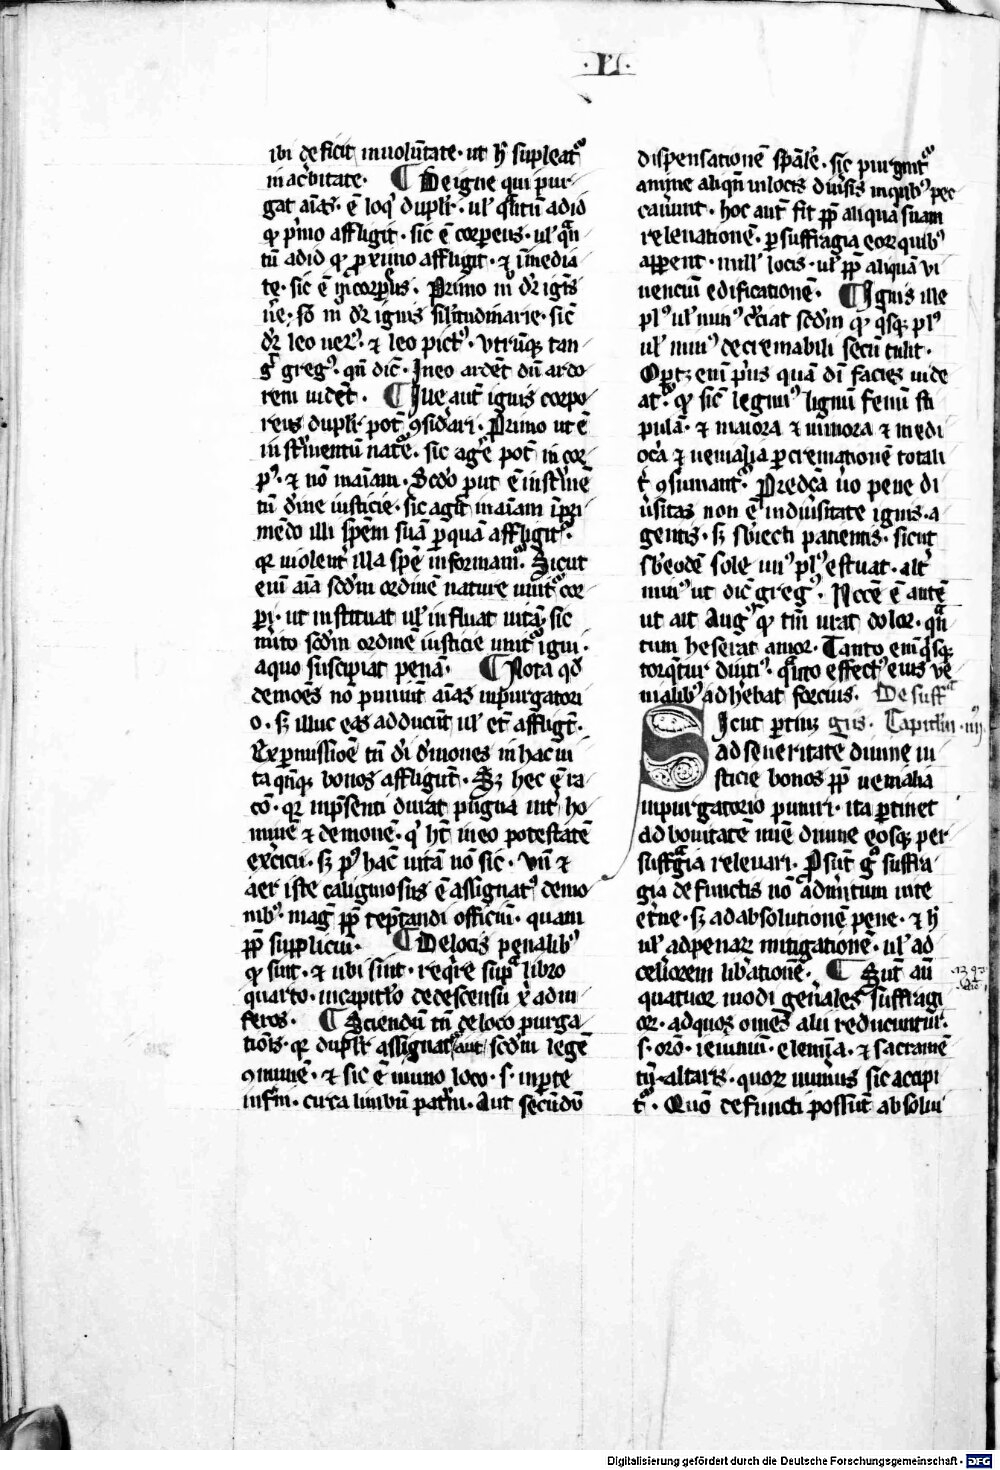 ·VI·
ibi deficit in uolūtate · ut hͨ supleatᷣ
in acͥbitate · ¶ De igne qui pur
gat aīas · ē loqͥ duplr̄ · ul' qͣtū ad id
qͩ pͥmo affligit · sic ē corpeus · ul' qͣn
tū ad id qͩ proximo affligit · ⁊ īmedia
te · sic ē īcorpeus · Primo mͦ dr̄ ignis
ūe · sͦ m dr̄ ignis sil'itudinarie · sic
dr̄ leo uerꝰ · ⁊ leo pictꝰ · vtrūqꝫ tan
gͥ gregꝰ · qn̄ dic̄ · In eo ardēt dū ardo
rem uidēt · ¶ Ille aūt ignis corpo
reus duplr̄ pot̄ ꝯsid'ari · Primo ut ē
instr̄mentū natͤ · sic agͤe pot̄ in cor
pꝰ · ⁊ nō in aīam · Scd̄o prout ē instr̄mē
tū d'ine iusticie · sic agit in aīam īpri
mēdo illi spēm suā per quā affligitᷣ ·
qr̄ violent' illa spē informanᷣ · Sicut
eni aīa scd̄m ordinē nature unitᷣ cor
pi · ut instituat ul' influat uitā · sic
mͥto scd̄m ordinē iusticie unitᷣ igni ·
a quo suscipiat penā · ¶ Nota qd̓
demōes nō puniūt aīas in purgatori
o · sꝫ illuc eas adducūt ul' et̄ affligūt ·
Ex pmissiōe tn̄ d'i d'mones in hac ui
ta qn̄qꝫ bonos affligūt · Sꝫ hec ē ra
tō · qr̄ in p̄senti durat pugna int' ho
minē ⁊ demonē · qͥ hꝫ in eo potestatē
ex'cicii · sꝫ pꝰ hāc uitā nō sic · Vn̄ ⁊
aer iste caliginosus ē assignatꝰ demo
nibꝰ · mag̓ ꝓpt' tēptandi officiū · quam
ꝓpt' suppliciū · ¶ De locis penalibꝰ
qͥ sint · ⁊ ubi sint · reqͥre supͣ libro
quarto · in capitl'o de descensu xͥ ad in
feros · ¶ Sciendū tn̄ de loco purga
tiōis · qr̄ duplr̄ assignatᷣ · aut scd̄m legē
ꝯmunē · ⁊ sic ē in uno loco · s · in parte
infͣm · circa limbū patrū · Aut secūdū
dispensationē spāle · sic puniunt'
anime aliqn̄ in locis diu'sis in qͥbꝰ pec
cauūnt · hoc aut̄ fit ꝓpt' aliquā suam
releuationē · p suffragia eorꝫ quibꝰ
apparent · in ill' locis · ul' ꝓpt' aliquā vi
uenciū edificationē · ¶ Ignis ille
plꝰ ul' minꝰ cͥciat scd̄m qͩ qͥsqꝫ plꝰ
ul' minꝰ decremabili secū tulit ·
Oportꝫ eni pͥus quā dn̄i facies uide
atᷣ · qͩ sic legimꝰ lignū fenū sti
pulā · ⁊ maiora ⁊ minora ⁊ medi
ocͥa ⁊ uenialia p cremationē totali
t̓ ꝯsumantᷣ · Predcā uo pene di
u'sitas non ē in diu'sitate ignis · a
gentis · sꝫ sb̓iecti patientis · sicut
sb̓ eodē sole unꝰ plꝰ estuat · alt'
minꝰ ut dic̄ gregꝰ · Nccē ē autē
ut ait Augꝰ qͩ tm̄ urat dolor · qͣn
tum heserat amor · Tanto eni qͥsqꝫ
torqͤtur diutiꝰ · qͣnto effectꝰ eius ve
nialibꝰ adhebat forcius · De suff
Sicut pertinꝫ giis · Capitl'm · iiij
ad seueritate diuine iu
sticie bonos ꝓpt' uenialia
in purgatorio puniri · ita ptinet
ad bonitatē mīe diuine eosqꝫ per
suffͣgia releuari · Psūt gͦ suffra
gia defunctis nō ad mͥtum uite
et'ne · sꝫ ad absolutionē pene · ⁊ hͨ
ul' ad penarꝫ mitigationē · ul' ad
celiorem lib'ationē · ¶ Sūt aūt
quatuor modi gen'ales suffragi
orꝫ · ad quos omēs alii reducuntur ·
s · orō · ieiuniū · elemīa · ⁊ sacramē
tū altaris · quorꝫ numerus sic accipi
tᷣ · Quō defuncti possūt absolui
Digitalisierung gefördert durch die Deutsche Forschungsgemeinschaft · DFG